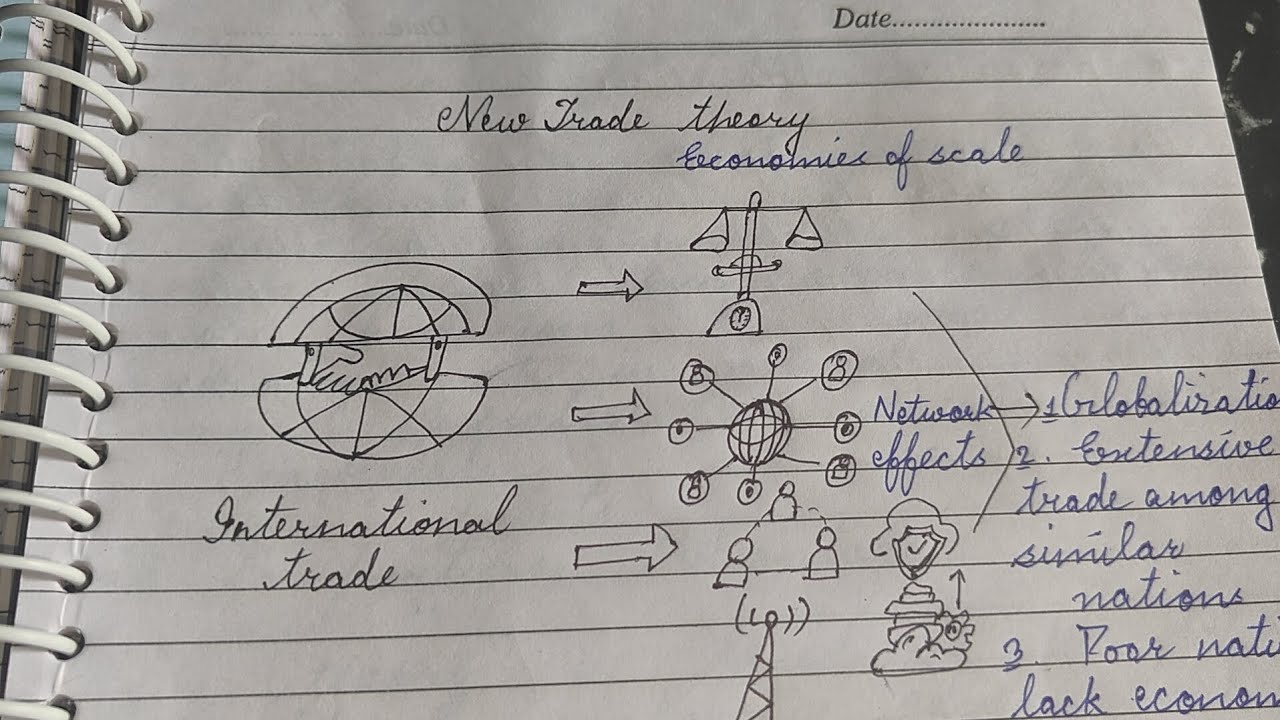 Date.....................
New Trade theory
Economies of scale
Network → 1 Globalizatio
effects 2. Extensive
trade among
similar
nations
International
trade
3. Poor nati
lack econom